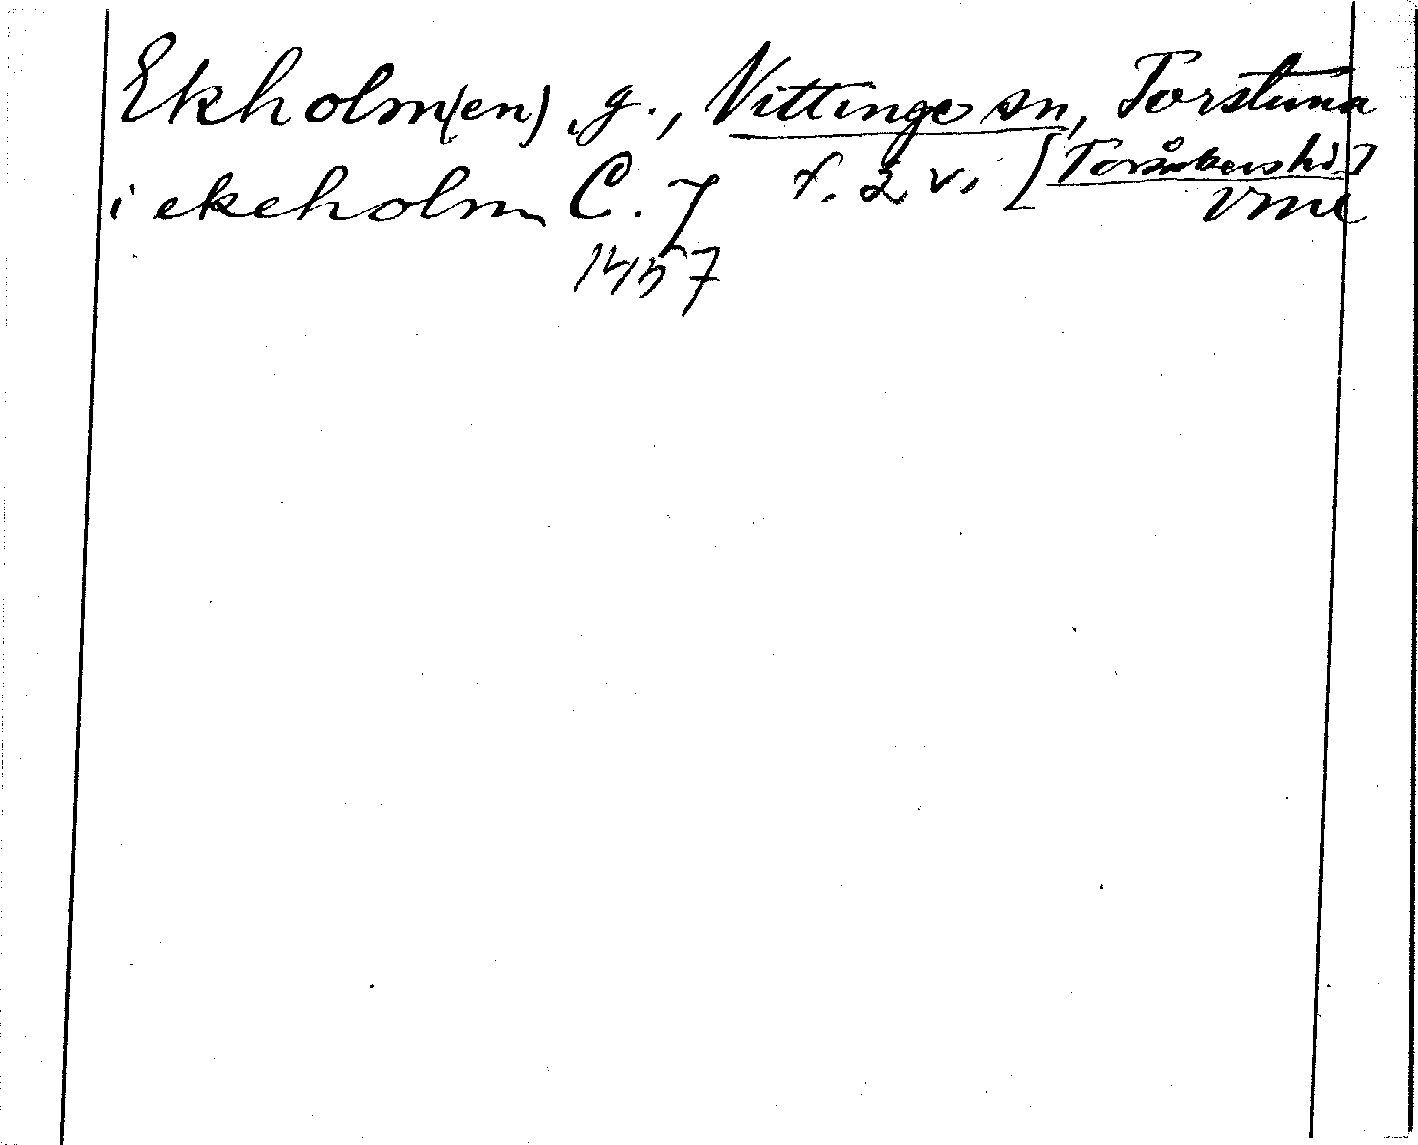 Ekholm(en), g., Vittinge sn, Torstuna
[Torsåkers hd]
i ekeholm C. 7 f. 2 v. Vml
1457